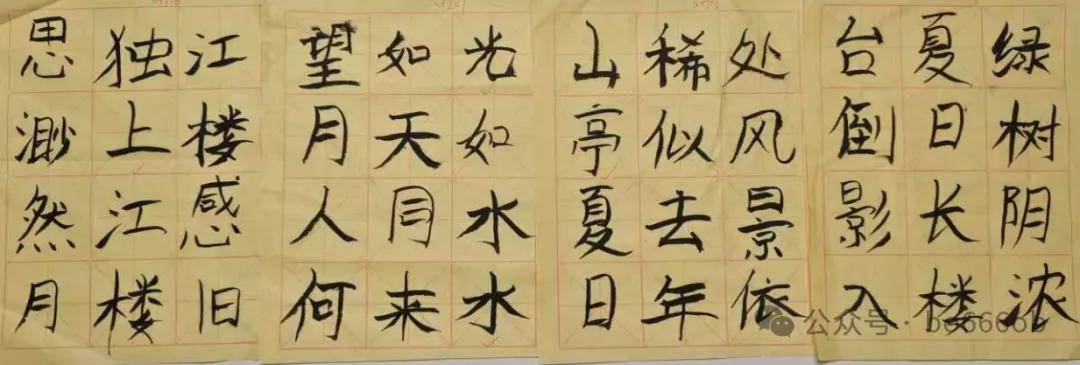 江楼感旧
独上江楼
思渺然月
光如水水
如天同来
望月人何
处风景依
稀似去年
山亭夏日
绿树阴浓
夏日长楼
台倒影入
公众号